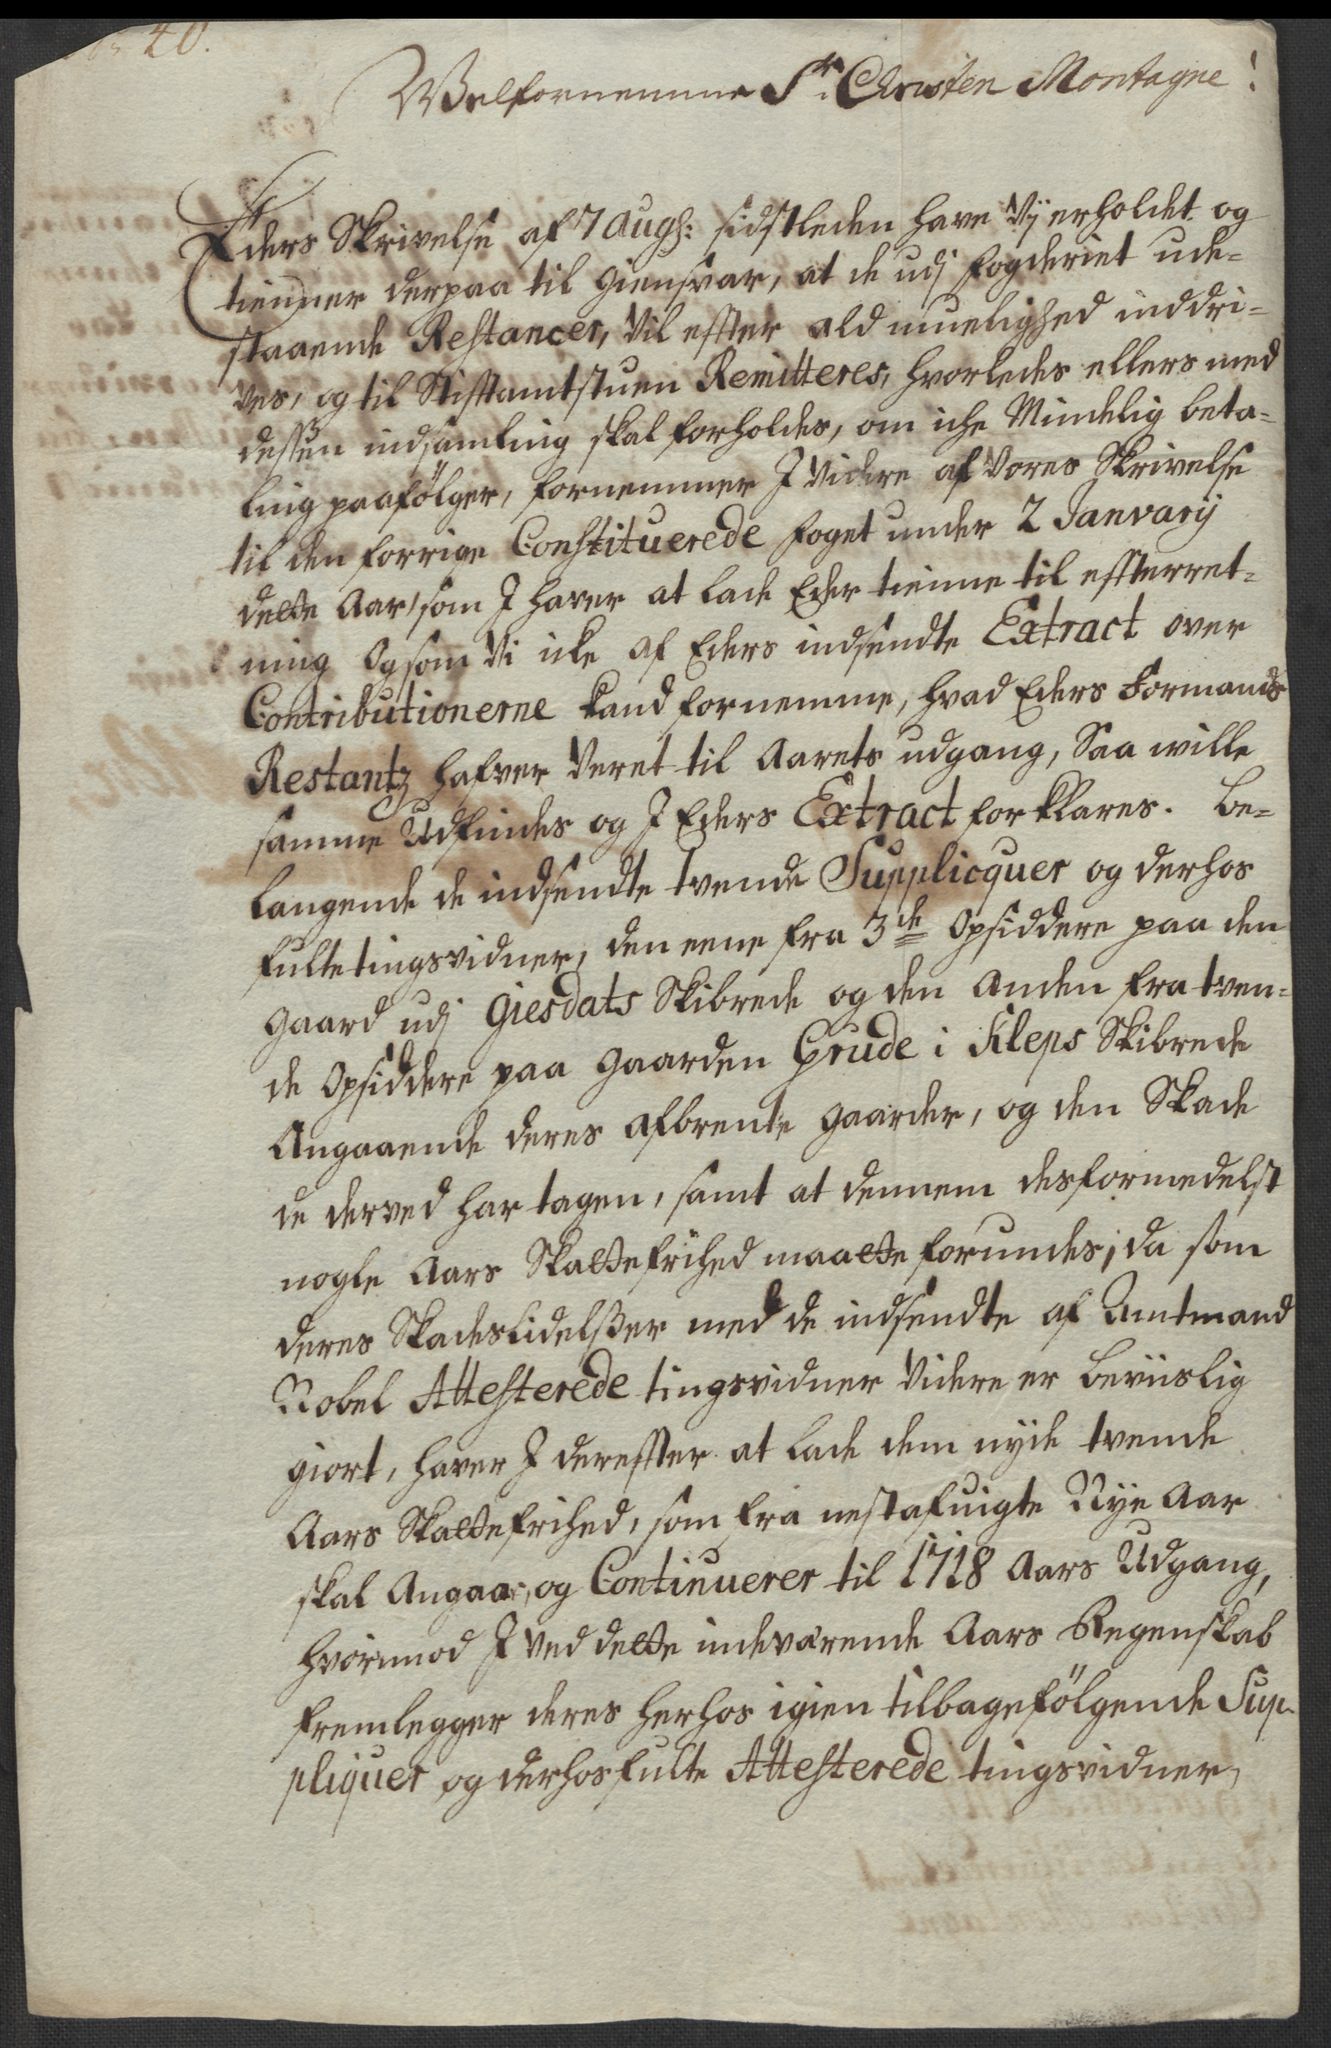 40.
Welfornemme Sr. Christen Montagne!
Eders Skrivelse af 7 Augs: sidstleden have Vij erholdet og
tienner derpaa til giensvar, at de udj fogderiet ude-
staaende Restancer, Vil effter ald muelighed inddri-
ves, og til Stiftamtstuen Remitteres, hvorledes ellers med
dessen indsamling skal forholdes, om iche Mindelig beta-
ling paafölger, fornemmer J Videre af Vores Skrivelse
til den forrige Constituerede foget under 2 Janvarij
dette Aar, som J haver at lade Eder tienne til effterret-
ning Og som Vi icke af Eders indsendte Extract over
Contributionerne kand fornemme, hvad Eders Formands
Restantz hafver Veret til Aarets udgang, Saa wille
samme Udfindes og J Eders Extract forklares. Be-
langende de indsendte tvende Supplicquer og derhos
fulte tingsvidner, den eene fra 3de Opsiddere paa den
gaard udj Giesdals Skibrede og den Anden fra tven-
de Opsiddere paa gaarden Grude i Kleps Skibrede
Angaaende deres afbrente gaarder, og den Skade
de derved har tagen, samt at dennem desformedelst
nogle Aars Skattefrihed maatte forundes; da som
deres Skadeslidelsser med de indsendte af Amtmand
Nobel Attesterede tingsvidner Videre er beviislig
giort, haver J dereffter at lade dem nyde tvende
Aars Skattefrihed, som fra nestafvigte Nye Aar
skal Angaa, og Continuerer til 1718 Aars Udgang,
hvorimod J ved dette indeværende Aars Regenskab
fremlegger deres herhos igien tilbagefölgende Sup-
pliquer og derhos fulte Attesterede tingsvidner,